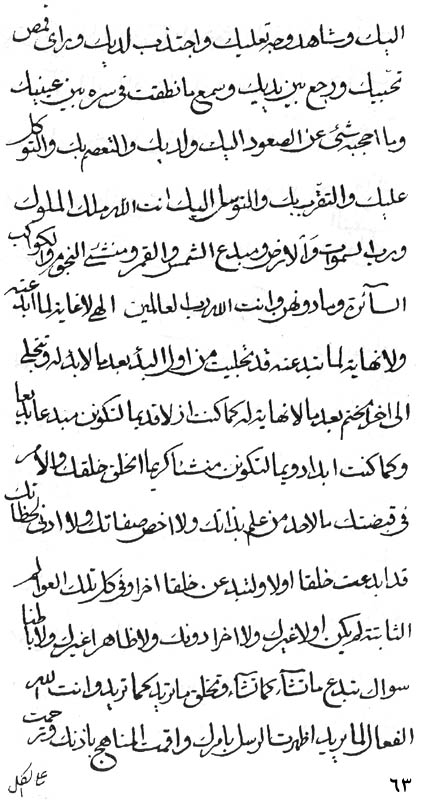 اليك وشاهد وجه تعليك واجتذب لديك وراى قمص
تحبيك ورجع بين يديك وسمع ما نطقت فى سره بين عينيك
وما احجبه شئ عن الصعود اليك ولديك والتعصم بك والتوكل
عليك والتقرب بك والتوسل اليك انت الله ملك الملوك
ورب السموات والارض ومبدع الشمس والقمر ومنشئ النجوم والكواكب
السائرة وما دونهن وانت الله رب العالمين الهى لا غاية لما ابدعته
ولا نهاية لما تبدعنه قد تجليت من اول البدء بعد ما لا بدء له وتتجلى
الى اخر الختم بعد ما لا نهاية له كما كنت ازلا قديما لتكونن مبدعا بديعا
وكما كنت ابدا دويما لتكونن منشئا كريما الخلق خلقك والامر
فى قبضتك ما لاحد من علم بذاتك ولا اخص صفاتك ولا ادنى لحظاتك
قد ابدعت خلقا اولا ولتبدعن خلقا اخرا وفى كل تلك العوالم
الثابتة لم يكن اولا غيرك ولا اخرا دونك ولا ظاهرا غيرك ولا باطنا
سواك تبدع ما تشاء كما تشاء وتخلق ما تريد كما تريد وانت الله
الفعال لما يريد اظهرت الرسل بامرك واقمت المناهج باذنك وترحمت
على الكل
٦٣